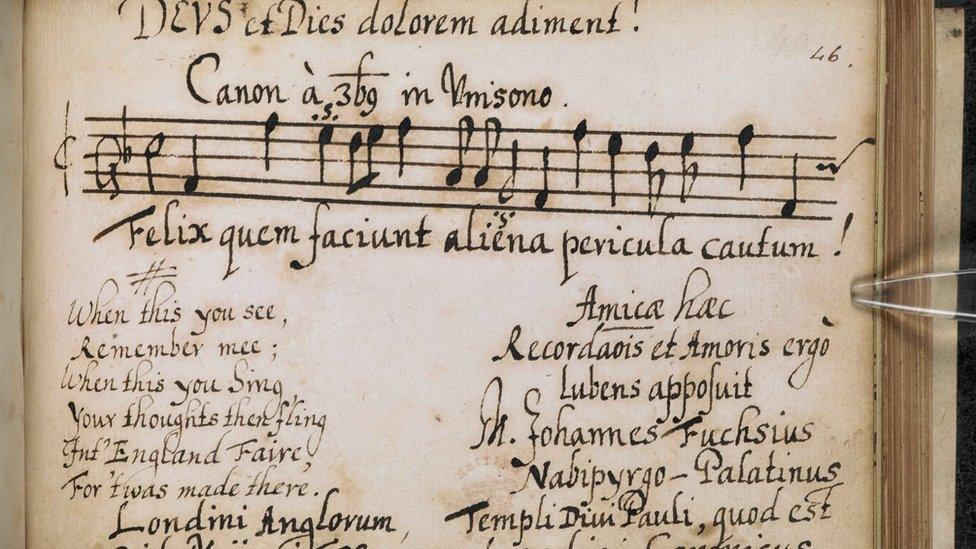 DEVS et Dies dolorem adiment!
46.
Canon à 3b9 in Vnisono.
.S.
.S.
Felix quem faciunt aliena pericula cautum!
When this you see,
Remember mee;
When this you Sing
Your thoughts then fling
Int' England Faire,
For 'twas made there.
Londini Anglorum,
Amicæ hæc
Recordaois et Amoris ergò
lubens apposuit
M. Johannes Fuchsius
Nabipyrgo-Palatinus
Templi Divi Pauli, quod est